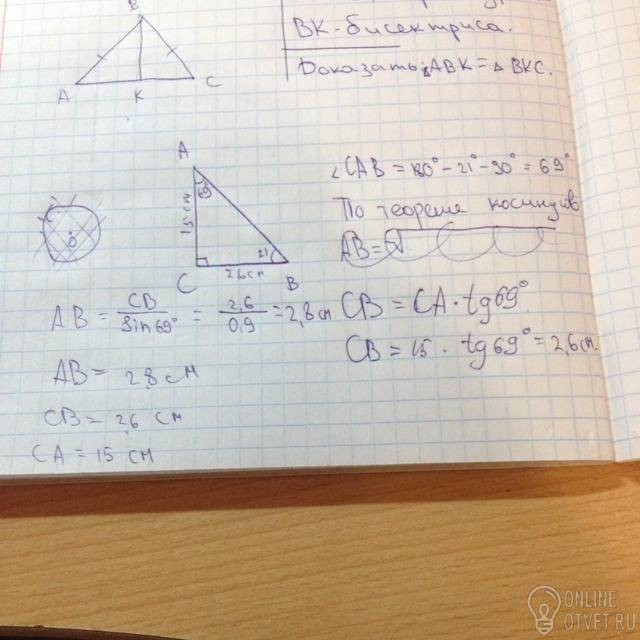 BK-бисектриса.
Доказать: ABK = △ BKC.
B
A K C
A
69°
15 см
21°
2,6 см
C B
∠CAB = 180° - 21° - 90° = 69°
По теореме косинусов
AB = √
AB = CB / Sin 69° = 2,6 / 0,9 = 2,8 см
CB = CA · tg 69°
CB = 15 · tg 69° = 2,6 см.
AB = 28 см
CB = 2,6 см
CA = 15 см
ONLINE
OTVET.RU